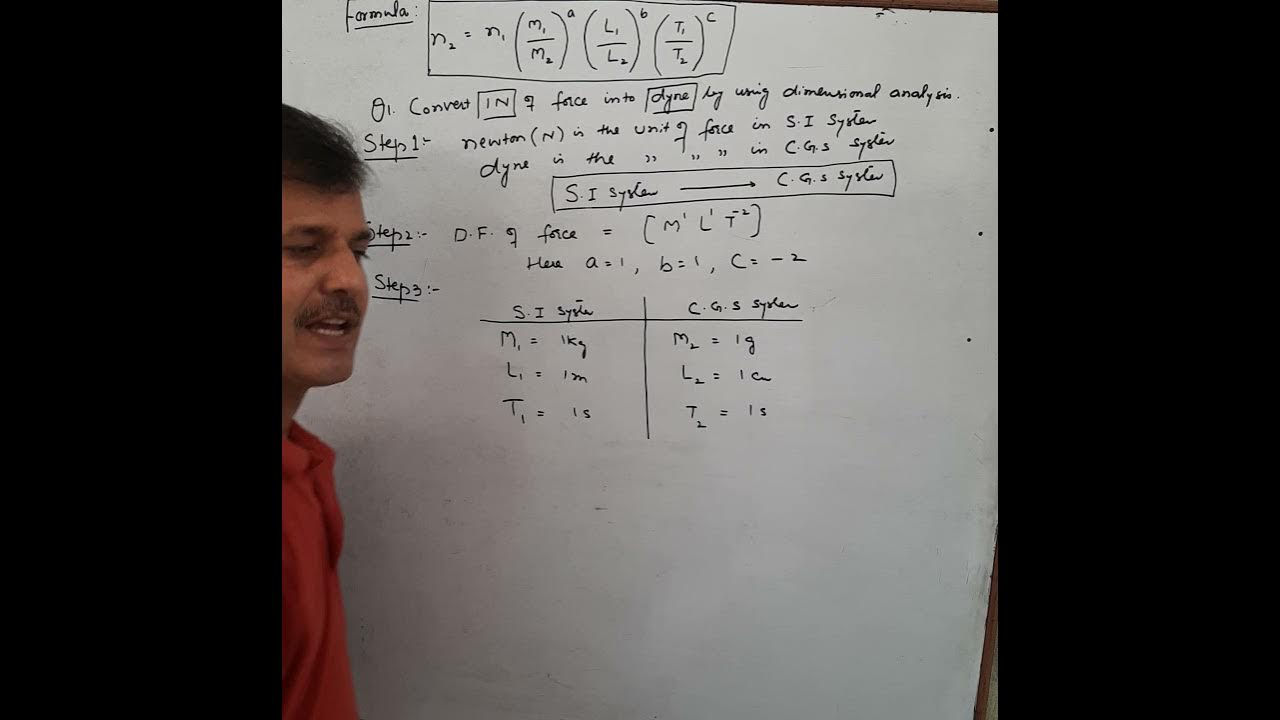 Formula:
n₂ = n₁ (M₁/M₂)ᵃ (L₁/L₂)ᵇ (T₁/T₂)ᶜ
Q1. Convert 1N of force into dyne by using dimensional analysis.
Step 1:- newton (N) is the unit of force in S.I System
dyne is the " " " in C.G.S System
S.I System ⟶ C.G.S System
Step2:- D.F. of force = [M¹ L¹ T⁻²]
Here a=1, b=1, c=-2
Step3:-
S.I System C.G.S System
M₁ = 1kg M₂ = 1g
L₁ = 1m L₂ = 1cm
T₁ = 1s T₂ = 1s